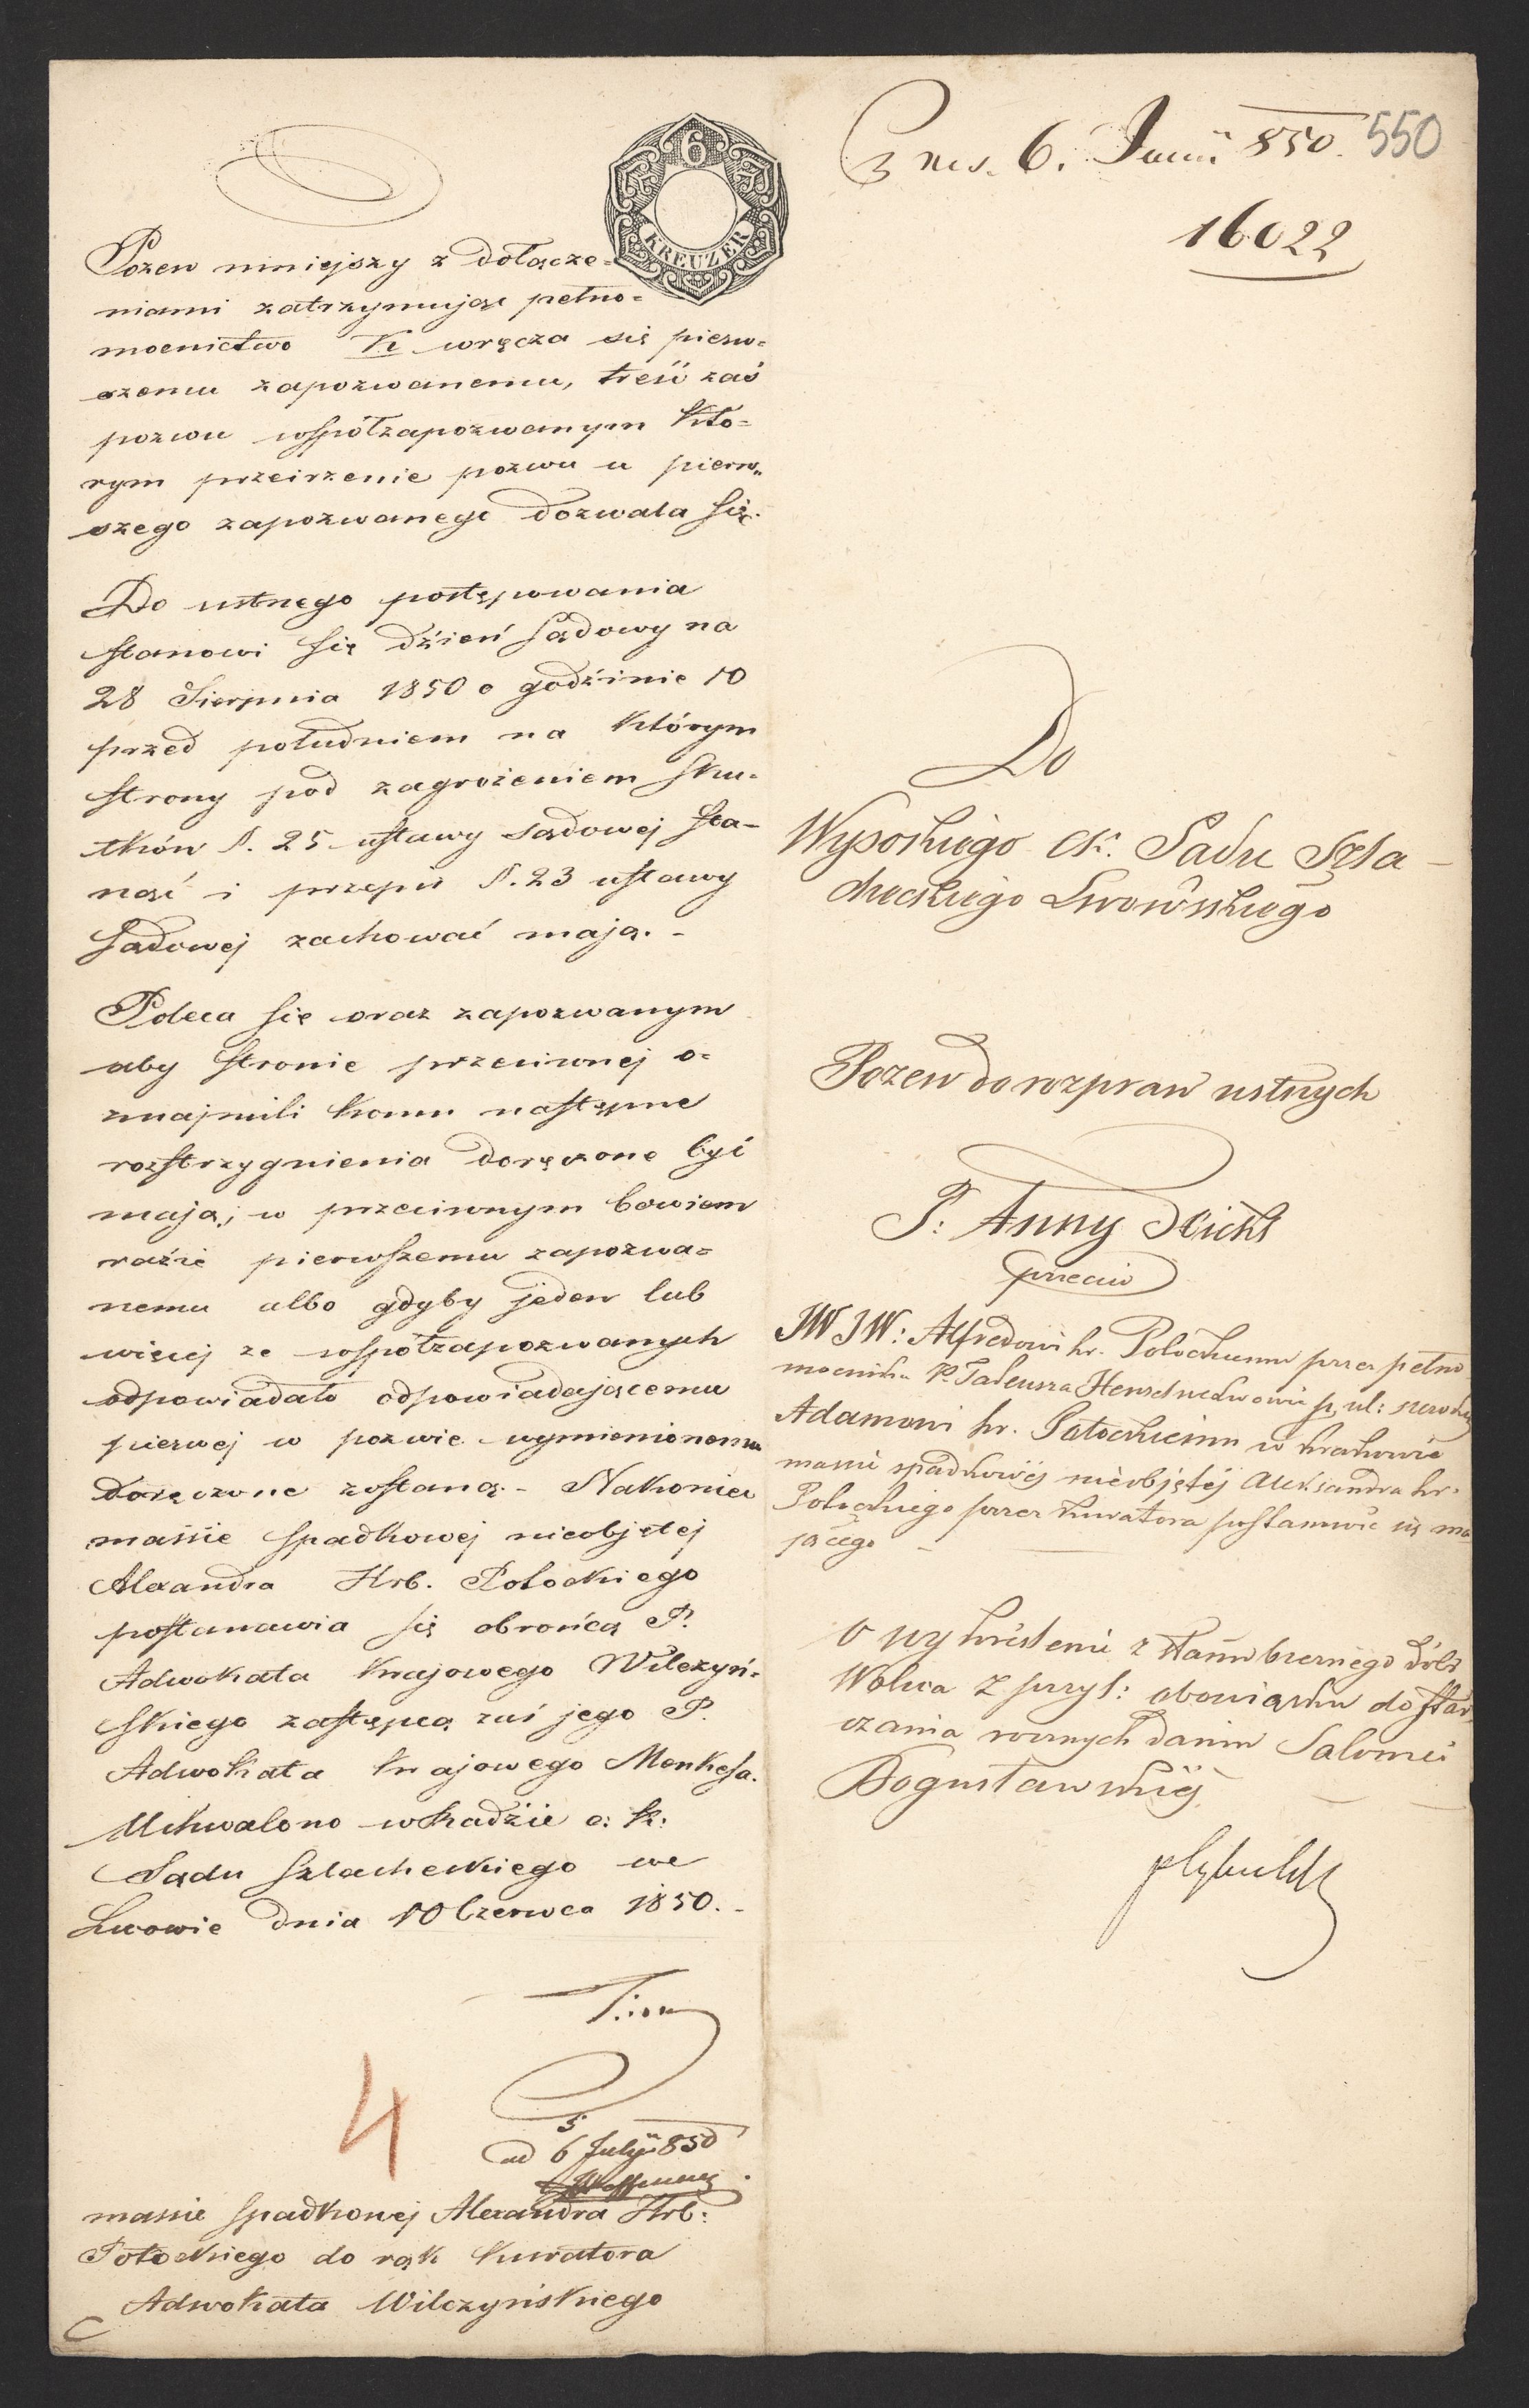 6
KREUZER
Pozew niniejszy z dołącze=
niami zatrzymując pełno=
mocnictwo K wręcza się pierw=
szemu zapozwanemu, treść zaś
pozwu współzapozwanym któ=
rym przeirzenie pozwu u pierw„
szego zapozwanego dozwala się.
Do ustnego postępowania
stanowi się dzień sądowy na
28 Sierpnia 1850 o godzinie 10
przed południem na którym
strony pod zagrożeniem sku-
tków §. 25 ustawy sądowej sta-
nąć i przepis §. 23 ustawy
sądowej zachować mają. -
Poleca się oraz zapozwanym
aby stronie przeciwnej o=
znajmili komu nastepne
rozstrzygnienia doręczone być
mają; w przeciwnym bowiem
razie pierwszemu zapozwa=
nemu albo gdyby jeden lub
więcej ze współzapozwanych
odpowiadało odpowiadającemu
pierwej w pozwie wymienionemu
doręczone zostaną. - Nakoniec
massie spadkowej nieobjętej
Alexandra Hrb. Potockiego
postanawia się obrońcą P.
Adwokata krajowego Wilczyń-
skiego zastępcą zaś jego P.
Adwokata krajowego Menkesa.
Uchwalono w Radzie c: k:
Sądu szlacheckiego we
Lwowie dnia 10 Czerwca 1850. -
4
5
ad 6 July 850
massie spadkowej Alexandra Hrb:
Potockiego do rąk kuratora
Adwokata Wilczyńskiego
6. Junii 850. 550
16022
Do
Wysokiego CK. Sądu Szla-
checkiego Lwowskiego
Pozew do rozpraw ustnych
P: Anny
przeciw
JW JW: Alfredowi hr. Potockiemu przez pełno
mocnika P. Tadeusza
Adamowi hr. Potockiemu w Krakowie
massie spadkowej nieobjętej Aleksandra hr.
Potockiego przez kuratora postanowić się ma
jącego
O wykreślenie z stanu biernego dóbr
Wolica z przyl: obowiązku dostar
czania rocznych danin Salomei
Bogusławskiej